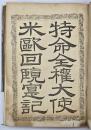 特命全權大使
米歐回覧實記